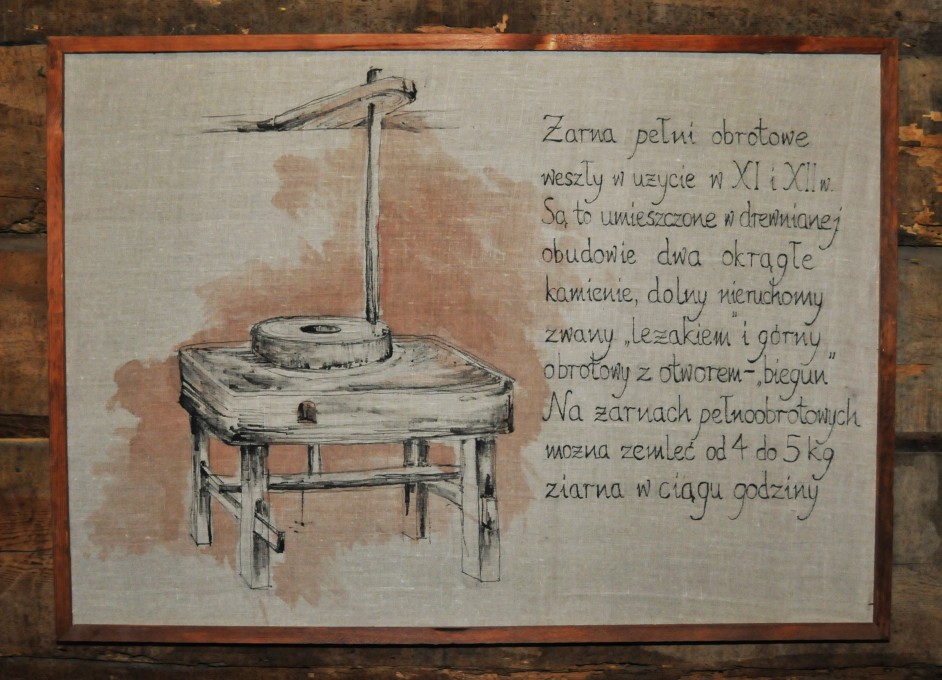 Żarna pełni obrotowe
weszły w użycie w XI i XII w.
Są to umieszczone w drewnianej
obudowie dwa okrągłe
kamienie, dolny nieruchomy
zwany „leżakiem" i górny
obrotowy z otworem-„biegun"
Na żarnach pełnoobrotowych
można zemleć od 4 do 5 kg
ziarna w ciągu godziny